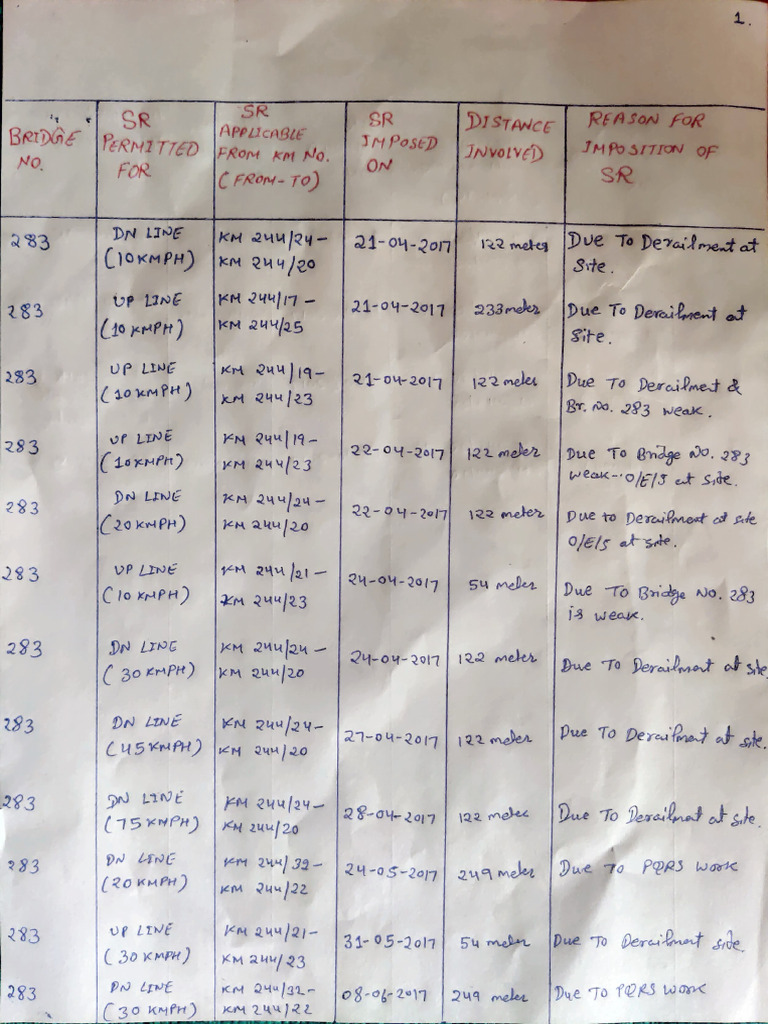 1.
BRIDGE NO. | SR PERMITTED FOR | SR APPLICABLE FROM KM NO. (FROM-TO) | SR IMPOSED ON | DISTANCE INVOLVED | REASON FOR IMPOSITION OF SR
283 | DN LINE (10KMPH) | KM 244/24- KM 244/20 | 21-04-2017 | 122 meter | Due To Derailment at Site.
283 | UP LINE (10KMPH) | KM 244/17- KM 244/25 | 21-04-2017 | 233 meter | Due To Derailment at Site.
283 | UP LINE (10KMPH) | KM 244/19- KM 244/23 | 21-04-2017 | 122 meter | Due To Derailment & Br. No. 283 weak.
283 | UP LINE (10KMPH) | KM 244/19- KM 244/23 | 22-04-2017 | 122 meter | Due To Bridge No. 283 weak-- O/E/S at Site.
283 | DN LINE (20KMPH) | KM 244/24- KM 244/20 | 22-04-2017 | 122 meter | Due to Derailment at site O/E/S at site.
283 | UP LINE (10KMPH) | KM 244/21- KM 244/23 | 24-04-2017 | 54 meter | Due To Bridge No. 283 is weak.
283 | DN LINE (30KMPH) | KM 244/24- KM 244/20 | 24-04-2017 | 122 meter | Due To Derailment at site.
283 | DN LINE (45KMPH) | KM 244/24- KM 244/20 | 27-04-2017 | 122 meter | Due To Derailment at site.
283 | DN LINE (75KMPH) | KM 244/24- KM 244/20 | 28-04-2017 | 122 meter | Due To Derailment at site.
283 | DN LINE (20KMPH) | KM 244/32- KM 244/22 | 24-05-2017 | 249 meter | Due To PQRS WORK
283 | UP LINE (30KMPH) | KM 244/21- KM 244/23 | 31-05-2017 | 54 meter | Due To Derailment site.
283 | DN LINE (30KMPH) | KM 244/32- KM 244/22 | 08-06-2017 | 249 meter | Due TO PQRS WORK